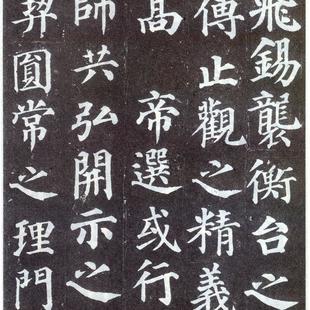 飛錫襲衡台之
傳止觀之精義
高 帝選或行
師共弘開示之
契圓常之理門